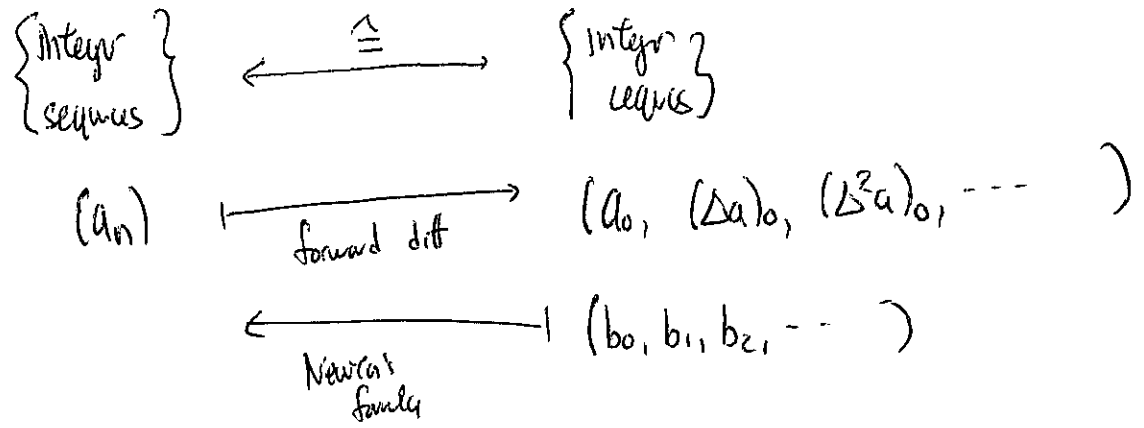 {integer sequences} ≙ ⟷ {integer sequences}
(aₙ) ⟼ forward diff (a₀, (Δa)₀, (Δ²a)₀, ---- )
⟻ Newton's formula (b₀, b₁, b₂, -- )